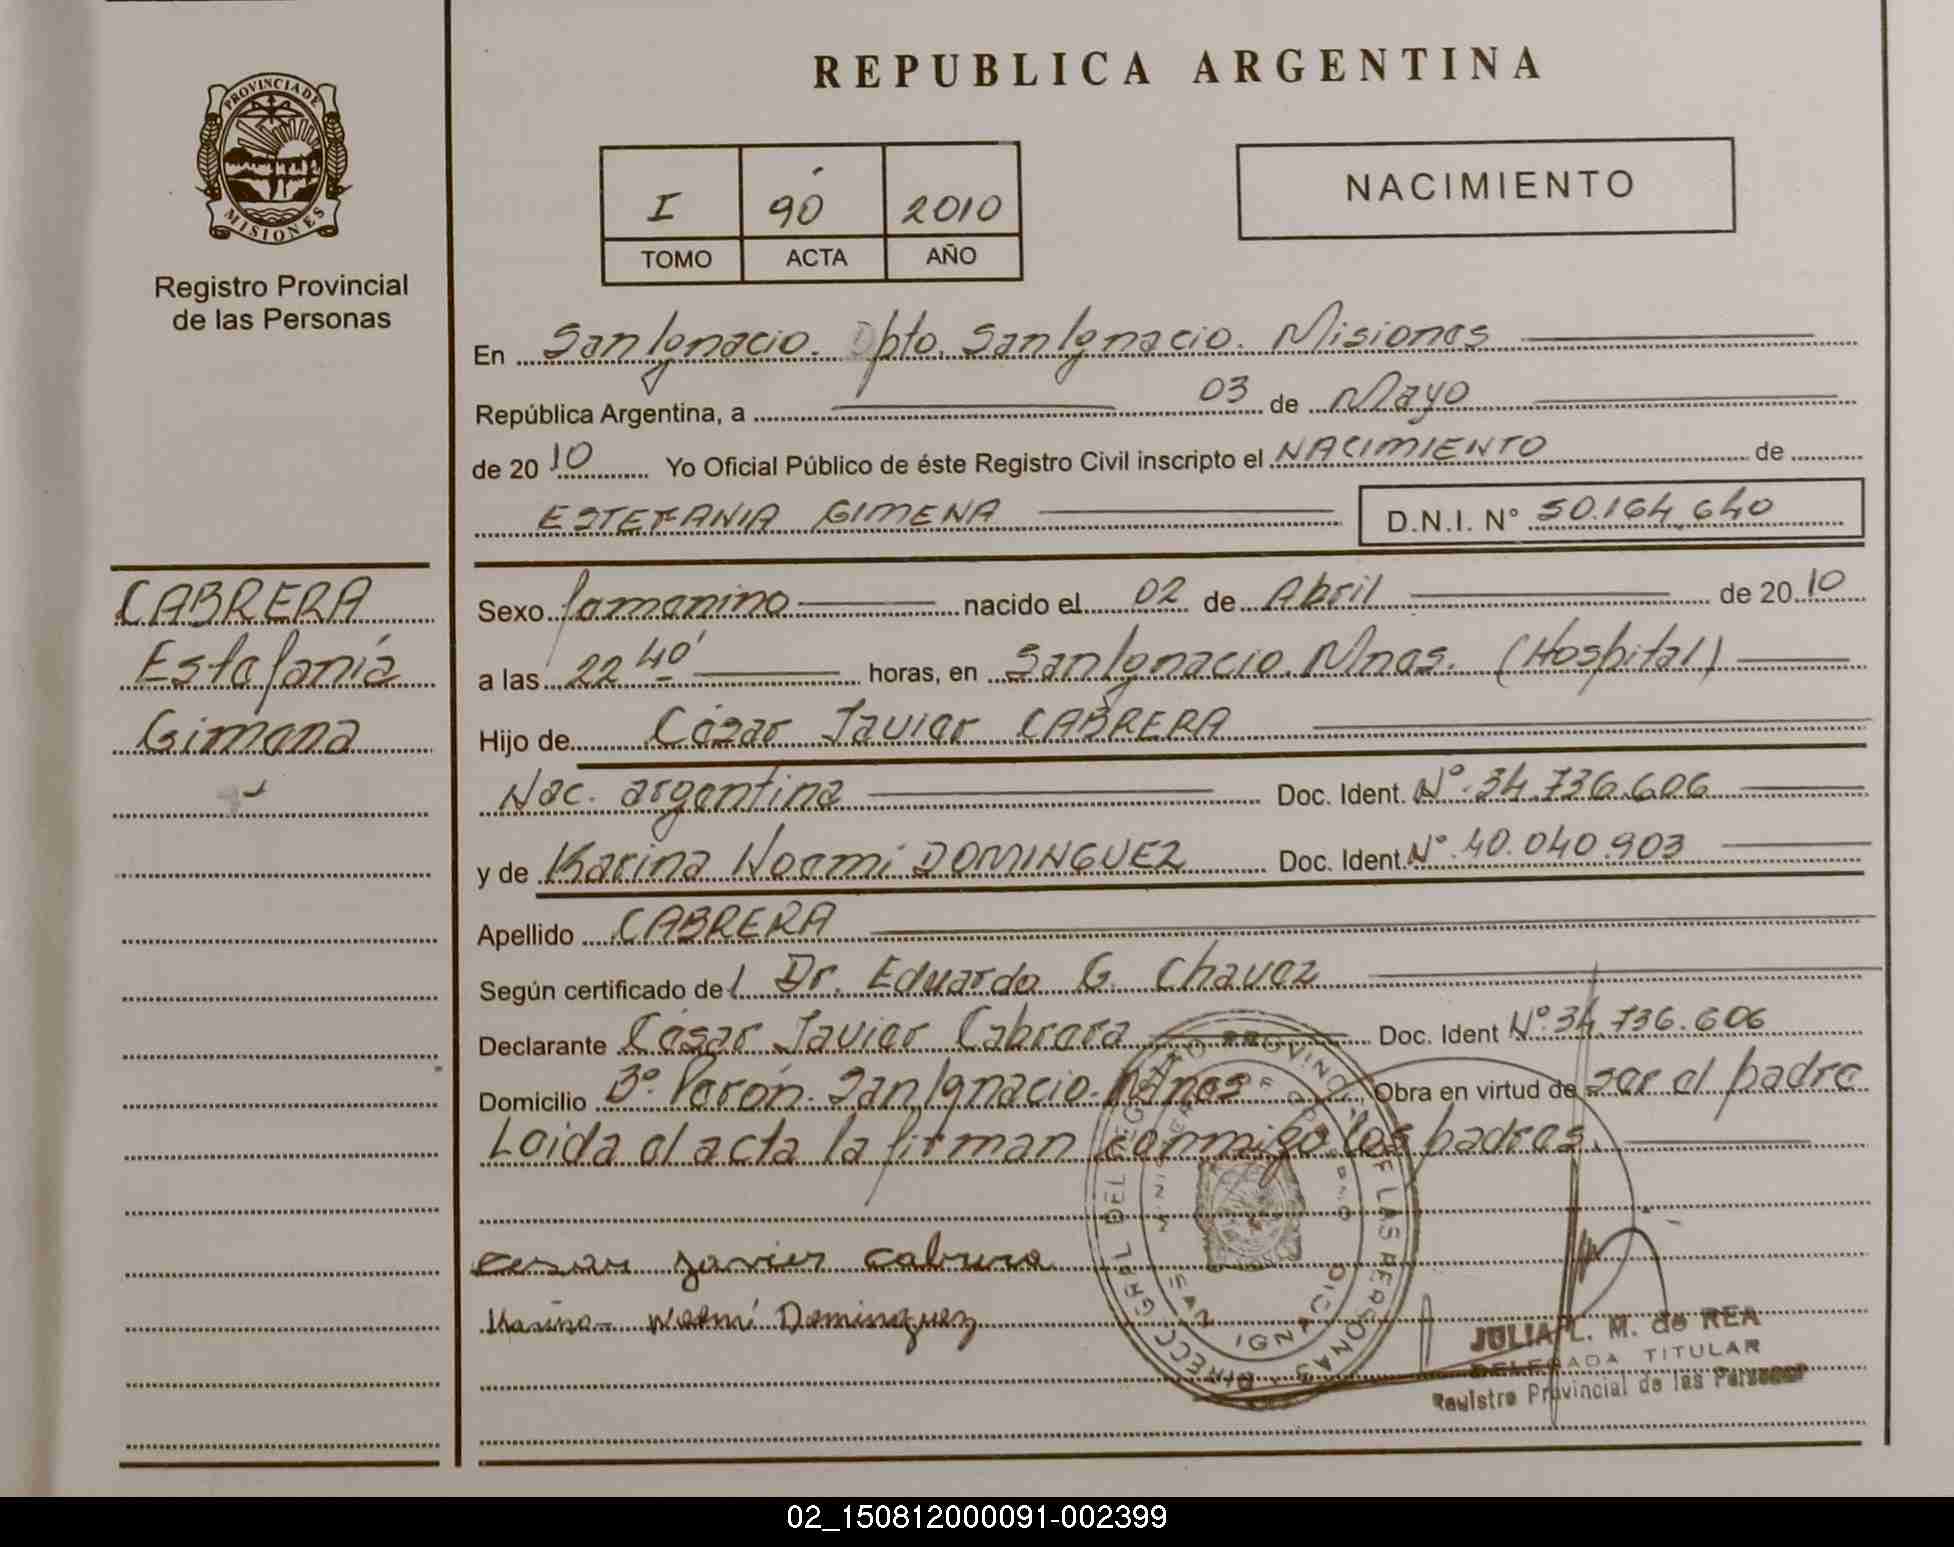 REPUBLICA ARGENTINA
PROVINCIA DE
MISIONES
Registro Provincial
de las Personas
I 90 2010
TOMO ACTA AÑO
NACIMIENTO
En San Ignacio. Dpto. San Ignacio. Misiones
República Argentina, a 03 de Mayo
de 20 10 Yo Oficial Público de éste Registro Civil inscripto el NACIMIENTO de
ESTEFANIA GIMENA D.N.I. N° 50.164.640
CABRERA
Estefanía
Gimena
Sexo femenino nacido el 02 de Abril de 20 10
a las 22 40' horas, en San Ignacio. Mnes. (Hospital)
Hijo de César Javier CABRERA
Nac. argentina Doc. Ident. N° 34.736.606
y de Karina Noemi DOMINGUEZ Doc. Ident. N° 40.040.903
Apellido CABRERA
Según certificado del Dr. Eduardo G. Chavez
Declarante César Javier Cabrera Doc. Ident N° 34.736.606
Domicilio B° Perón. San Ignacio. Mnes Obra en virtud de ser el padre
Leida el acta la firman conmigo los padres.
Cesar Javier Cabrera
Karina Noemí Dominguez
DIRECC. GRAL. DEL REGISTRO PROVINCIAL DE LAS PERSONAS
SAN IGNACIO
JULIA L. M. de REA
DELEGADA TITULAR
Registro Provincial de las Personas
02_150812000091-002399